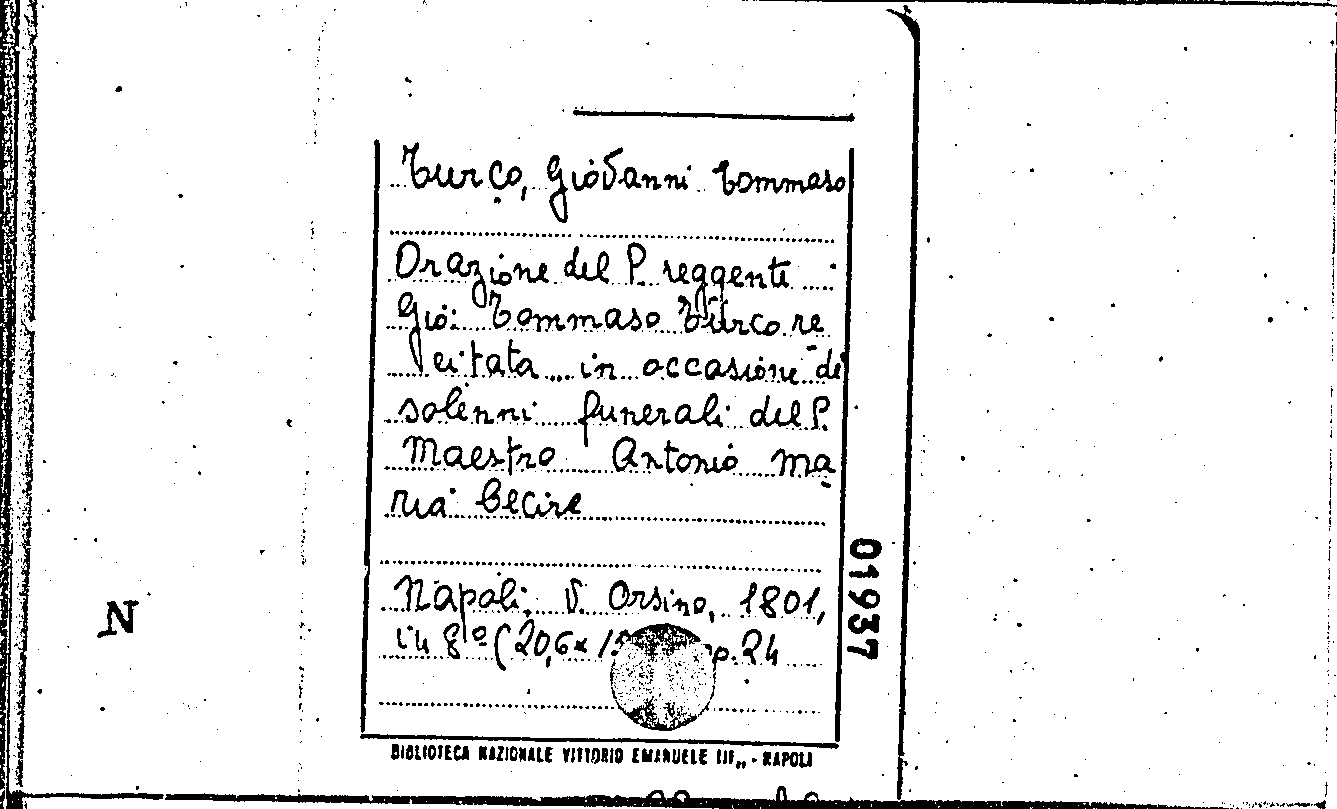 Turco, Giovanni Tommaso
Orazione del P. reggente
Gio: Tommaso Turco re
citata in occasione de
solenni funerali del P.
Maestro Antonio Ma
ria
Napoli, V. Orsino, 1801,
in 8º (20,6x 1 p. 24
01937
N
BIBLIOTECA NAZIONALE VITTORIO EMANUELE III„ - NAPOLI